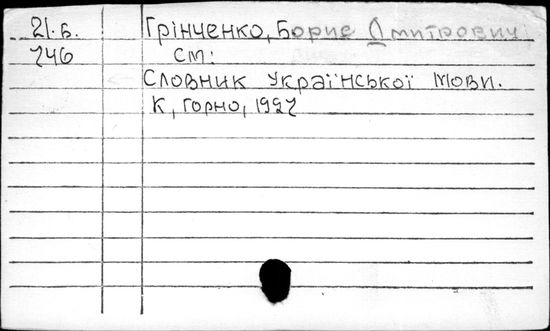 21.Б. Грінченко, Борис Дмитрович
746 см:
Словник української мови.
К, Горно, 1927